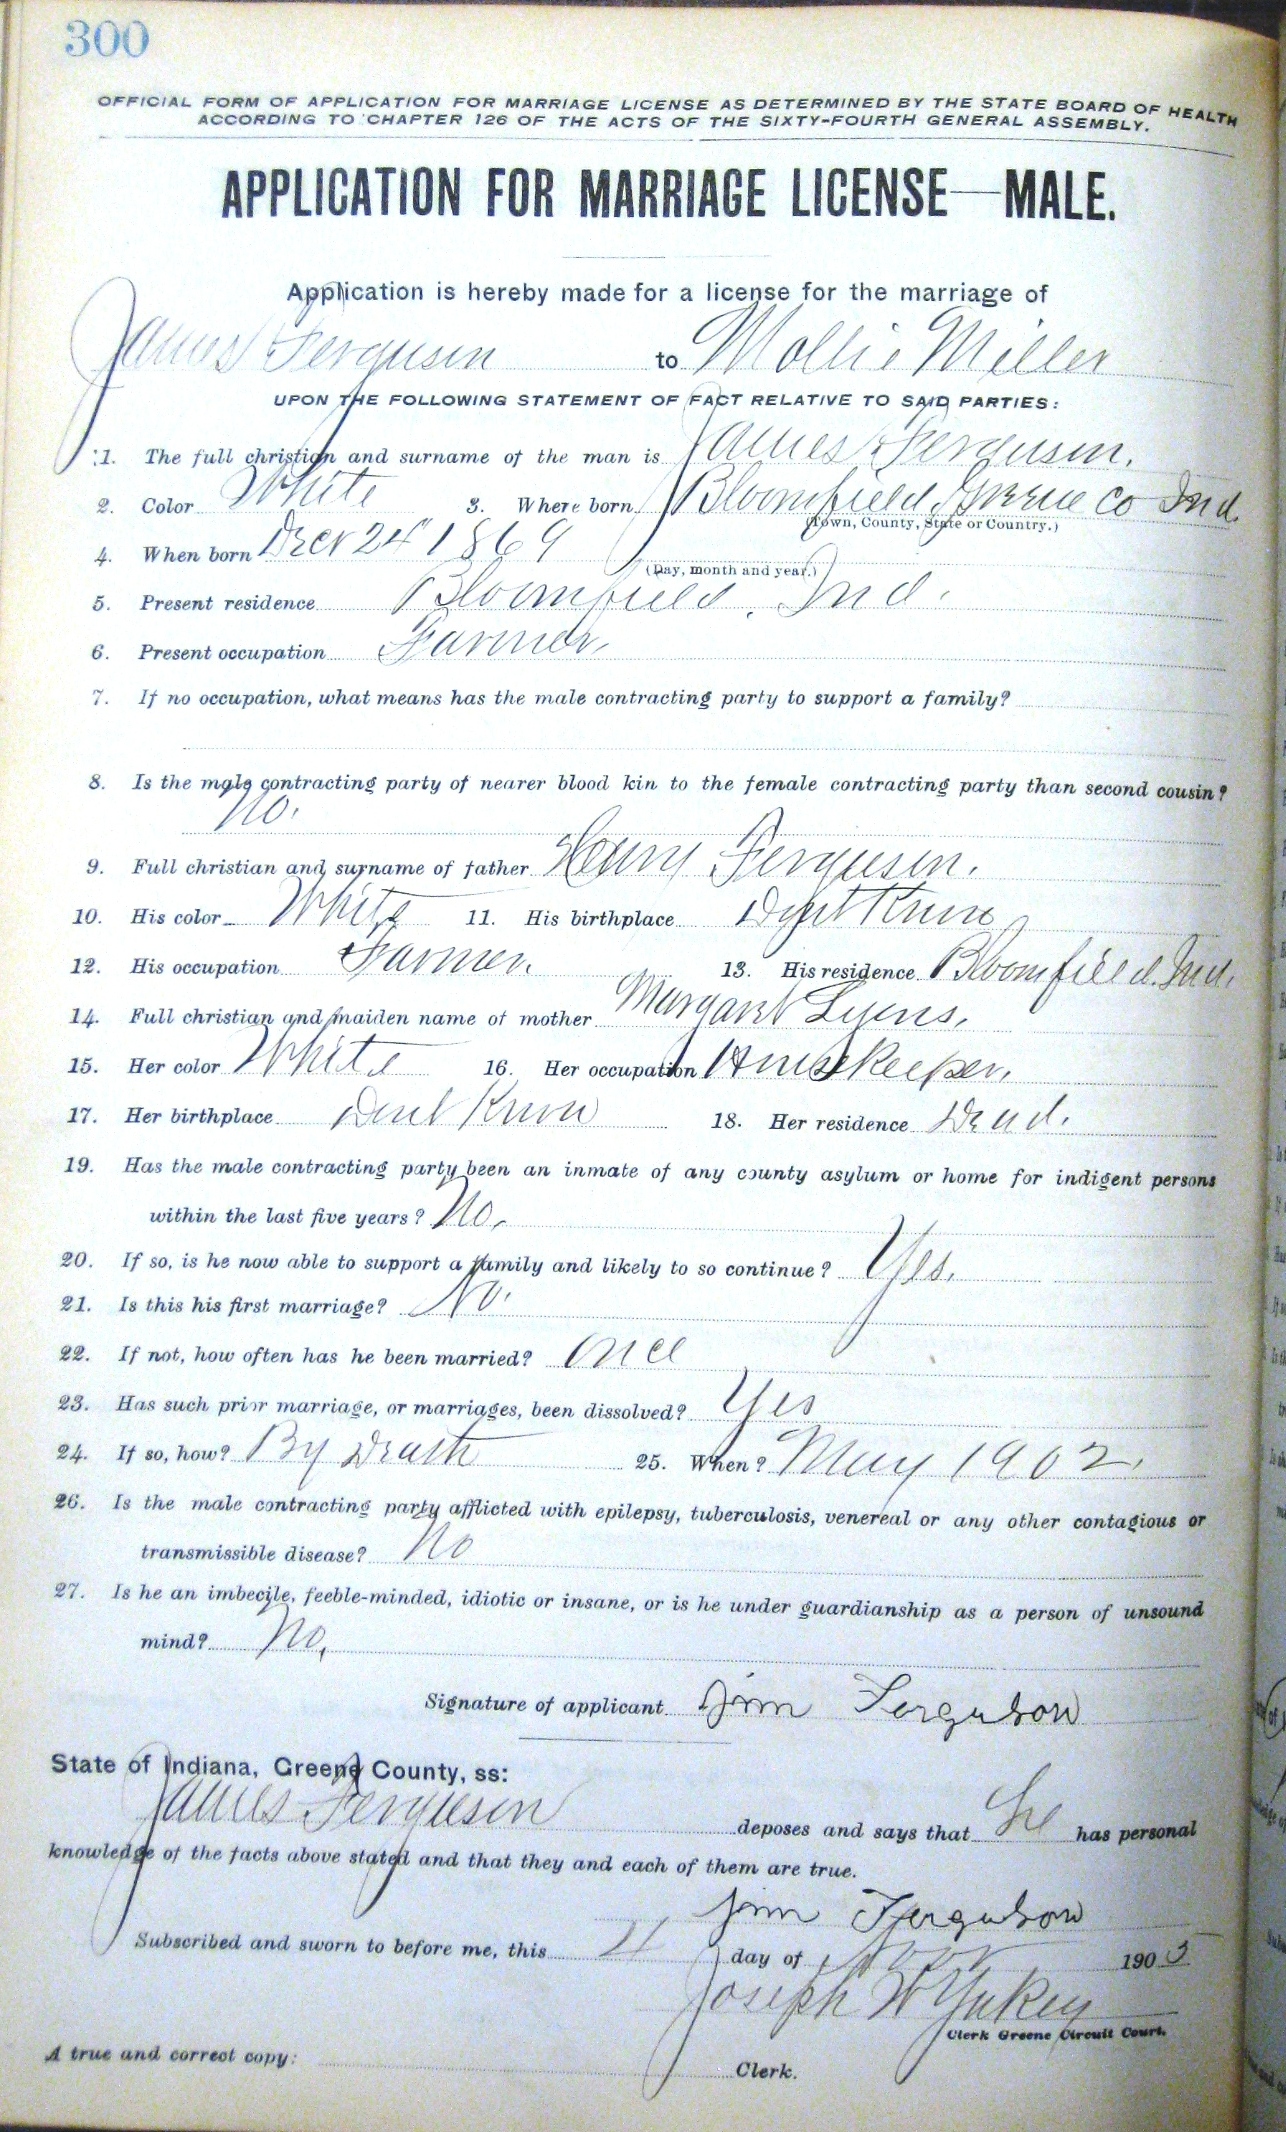 300
OFFICIAL FORM OF APPLICATION FOR MARRIAGE LICENSE AS DETERMINED BY THE STATE BOARD OF HEALTH
ACCORDING TO CHAPTER 126 OF THE ACTS OF THE SIXTY-FOURTH GENERAL ASSEMBLY.
APPLICATION FOR MARRIAGE LICENSE—MALE.
Application is hereby made for a license for the marriage of
James Ferguson to Mollie Miller
UPON THE FOLLOWING STATEMENT OF FACT RELATIVE TO SAID PARTIES:
1. The full christian and surname of the man is James Ferguson.
2. Color White 3. Where born Bloomfield, Greene Co Ind.
(Town, County, State or Country.)
4. When born Decr 24" 1869
(Day, month and year.)
5. Present residence Bloomfield, Ind.
6. Present occupation Farmer,
7. If no occupation, what means has the male contracting party to support a family?
8. Is the male contracting party of nearer blood kin to the female contracting party than second cousin?
No.
9. Full christian and surname of father Henry Ferguson.
10. His color White 11. His birthplace Dont Know
12. His occupation Farmer. 13. His residence Bloomfield. Ind.
14. Full christian and maiden name of mother Margaret Lyons,
15. Her color White 16. Her occupation Housekeeper,
17. Her birthplace Dont Know 18. Her residence Dead.
19. Has the male contracting party been an inmate of any county asylum or home for indigent persons
within the last five years? No.
20. If so, is he now able to support a family and likely to so continue? Yes,
21. Is this his first marriage? No.
22. If not, how often has he been married? Once
23. Has such prior marriage, or marriages, been dissolved? Yes
24. If so, how? By Death 25. When? May 1902.
26. Is the male contracting party afflicted with epilepsy, tuberculosis, venereal or any other contagious or
transmissible disease? No
27. Is he an imbecile, feeble-minded, idiotic or insane, or is he under guardianship as a person of unsound
mind? No,
Signature of applicant Jim Ferguson
State of Indiana, Greene County, ss:
James Ferguson deposes and says that he has personal
knowledge of the facts above stated and that they and each of them are true.
Jim Ferguson
Subscribed and sworn to before me, this 4 day of Novr 1905
Joseph W Yakey
Clerk Greene Circuit Court.
A true and correct copy: Clerk.